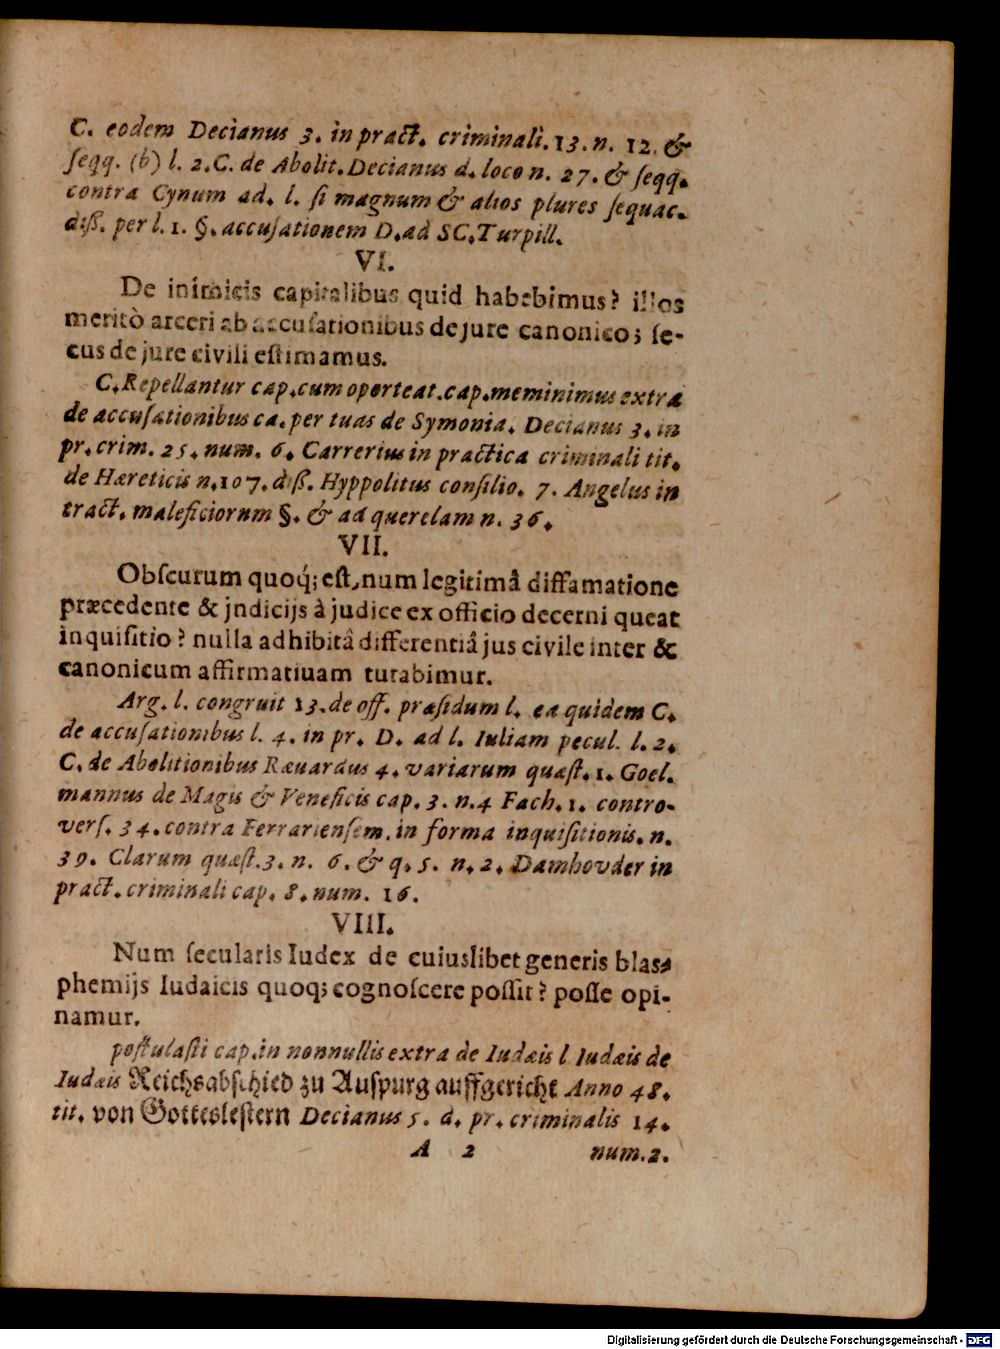 C. eodem Decianus 3. in pract. criminali. 13. n. 12. &
ſeqq. (b) l. 2. C. de Abolit. Decianus d. loco n. 27. & ſeqq.
contra Cynum ad. l. ſi magnum & alios plures ſequac.
diß. per l. 1. §. accuſationem D. ad SC. Turpill.
VI.
De inimicis capitalibus quid habebimus? illos
meritò arceri ab accuſationibus de jure canonico; ſe-
cus de jure civili eſtimamus.
C. Repellantur cap. cum oporteat. cap. meminimus extra
de accuſationibus ca. per tuas de Symonia. Decianus 3. in
pr. crim. 25. num. 6. Carrerius in practica criminali tit.
de Hæreticis n. 107. diß. Hyppolitus conſilio. 7. Angelus in
tract. maleficiorum §. & ad querelam n. 36.
VII.
Obſcurum quoq́; eſt, num legitimâ diffamatione
præcedente & jndicijs à judice ex officio decerni queat
inquiſitio? nulla adhibitâ differentiâ jus civile inter &
canonicum affirmatiuam tutabimur.
Arg. l. congruit 13. de off. præſidum l. ea quidem C.
de accuſationibus l. 4. in pr. D. ad l. Iuliam pecul. l. 2.
C. de Abolitionibus Ræuardus 4. variarum quæſt. 1. Goel.
mannus de Magis & Veneficis cap. 3. n. 4 Fach. 1. contro-
verſ. 34. contra Ferrarienſem. in forma inquiſitionis. n.
39. Clarum quæſt. 3. n. 6. & q. 5. n. 2. Damhovder in
pract. criminali cap. 8. num. 16.
VIII.
Num ſecularis Iudex de cuiuslibet generis blas-
phemijs Iudaicis quoq; cognoſcere poſſit? poſſe opi-
namur.
poſtulaſti cap. in nonnullis extra de Iudæis l Iudæis de
Iudæis Reichsabſchied zu Auſpurg auffgericht Anno 48.
tit. von Gottesleſtern Decianus 5. d. pr. criminalis 14.
A 2 num. 2.
Digitalisierung gefördert durch die Deutsche Forschungsgemeinschaft - DFG